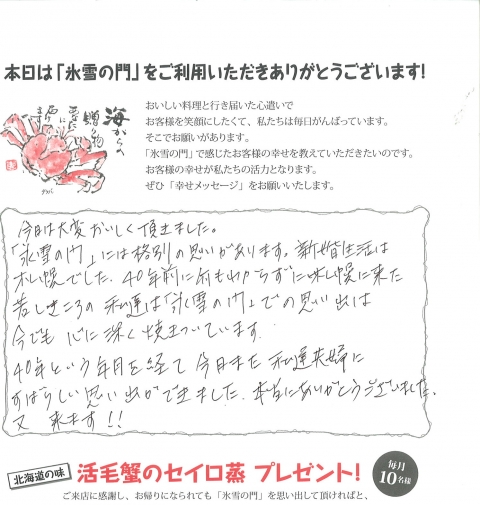 本日は「氷雪の門」をご利用いただきありがとうございます!
海からの
贈り物
あなたに
届けます
おいしい料理と行き届いた心遣いで
お客様を笑顔にしたくて、私たちは毎日がんばっています。
そこでお願いがあります。
「氷雪の門」で感じたお客様の幸せを教えていただきたいのです。
お客様の幸せが私たちの活力となります。
ぜひ「幸せメッセージ」をお願いいたします。
今日は大変おいしく頂きました。
「氷雪の門」には格別の思いがあります。新婚生活は
札幌でした。40年前に何もわからずに札幌に来た
若しきころの私達は「氷雪の門」での思い出は
今でも心に深く焼きついています。
40年という年月を経て今日また私達夫婦に
すばらしい思い出ができました。本当にありがとうございました。
又来ます!!
北海道の味
活毛蟹のセイロ蒸 プレゼント!
毎月
10名様
ご来店に感謝し、お帰りになられても「氷雪の門」を思い出して頂ければと、